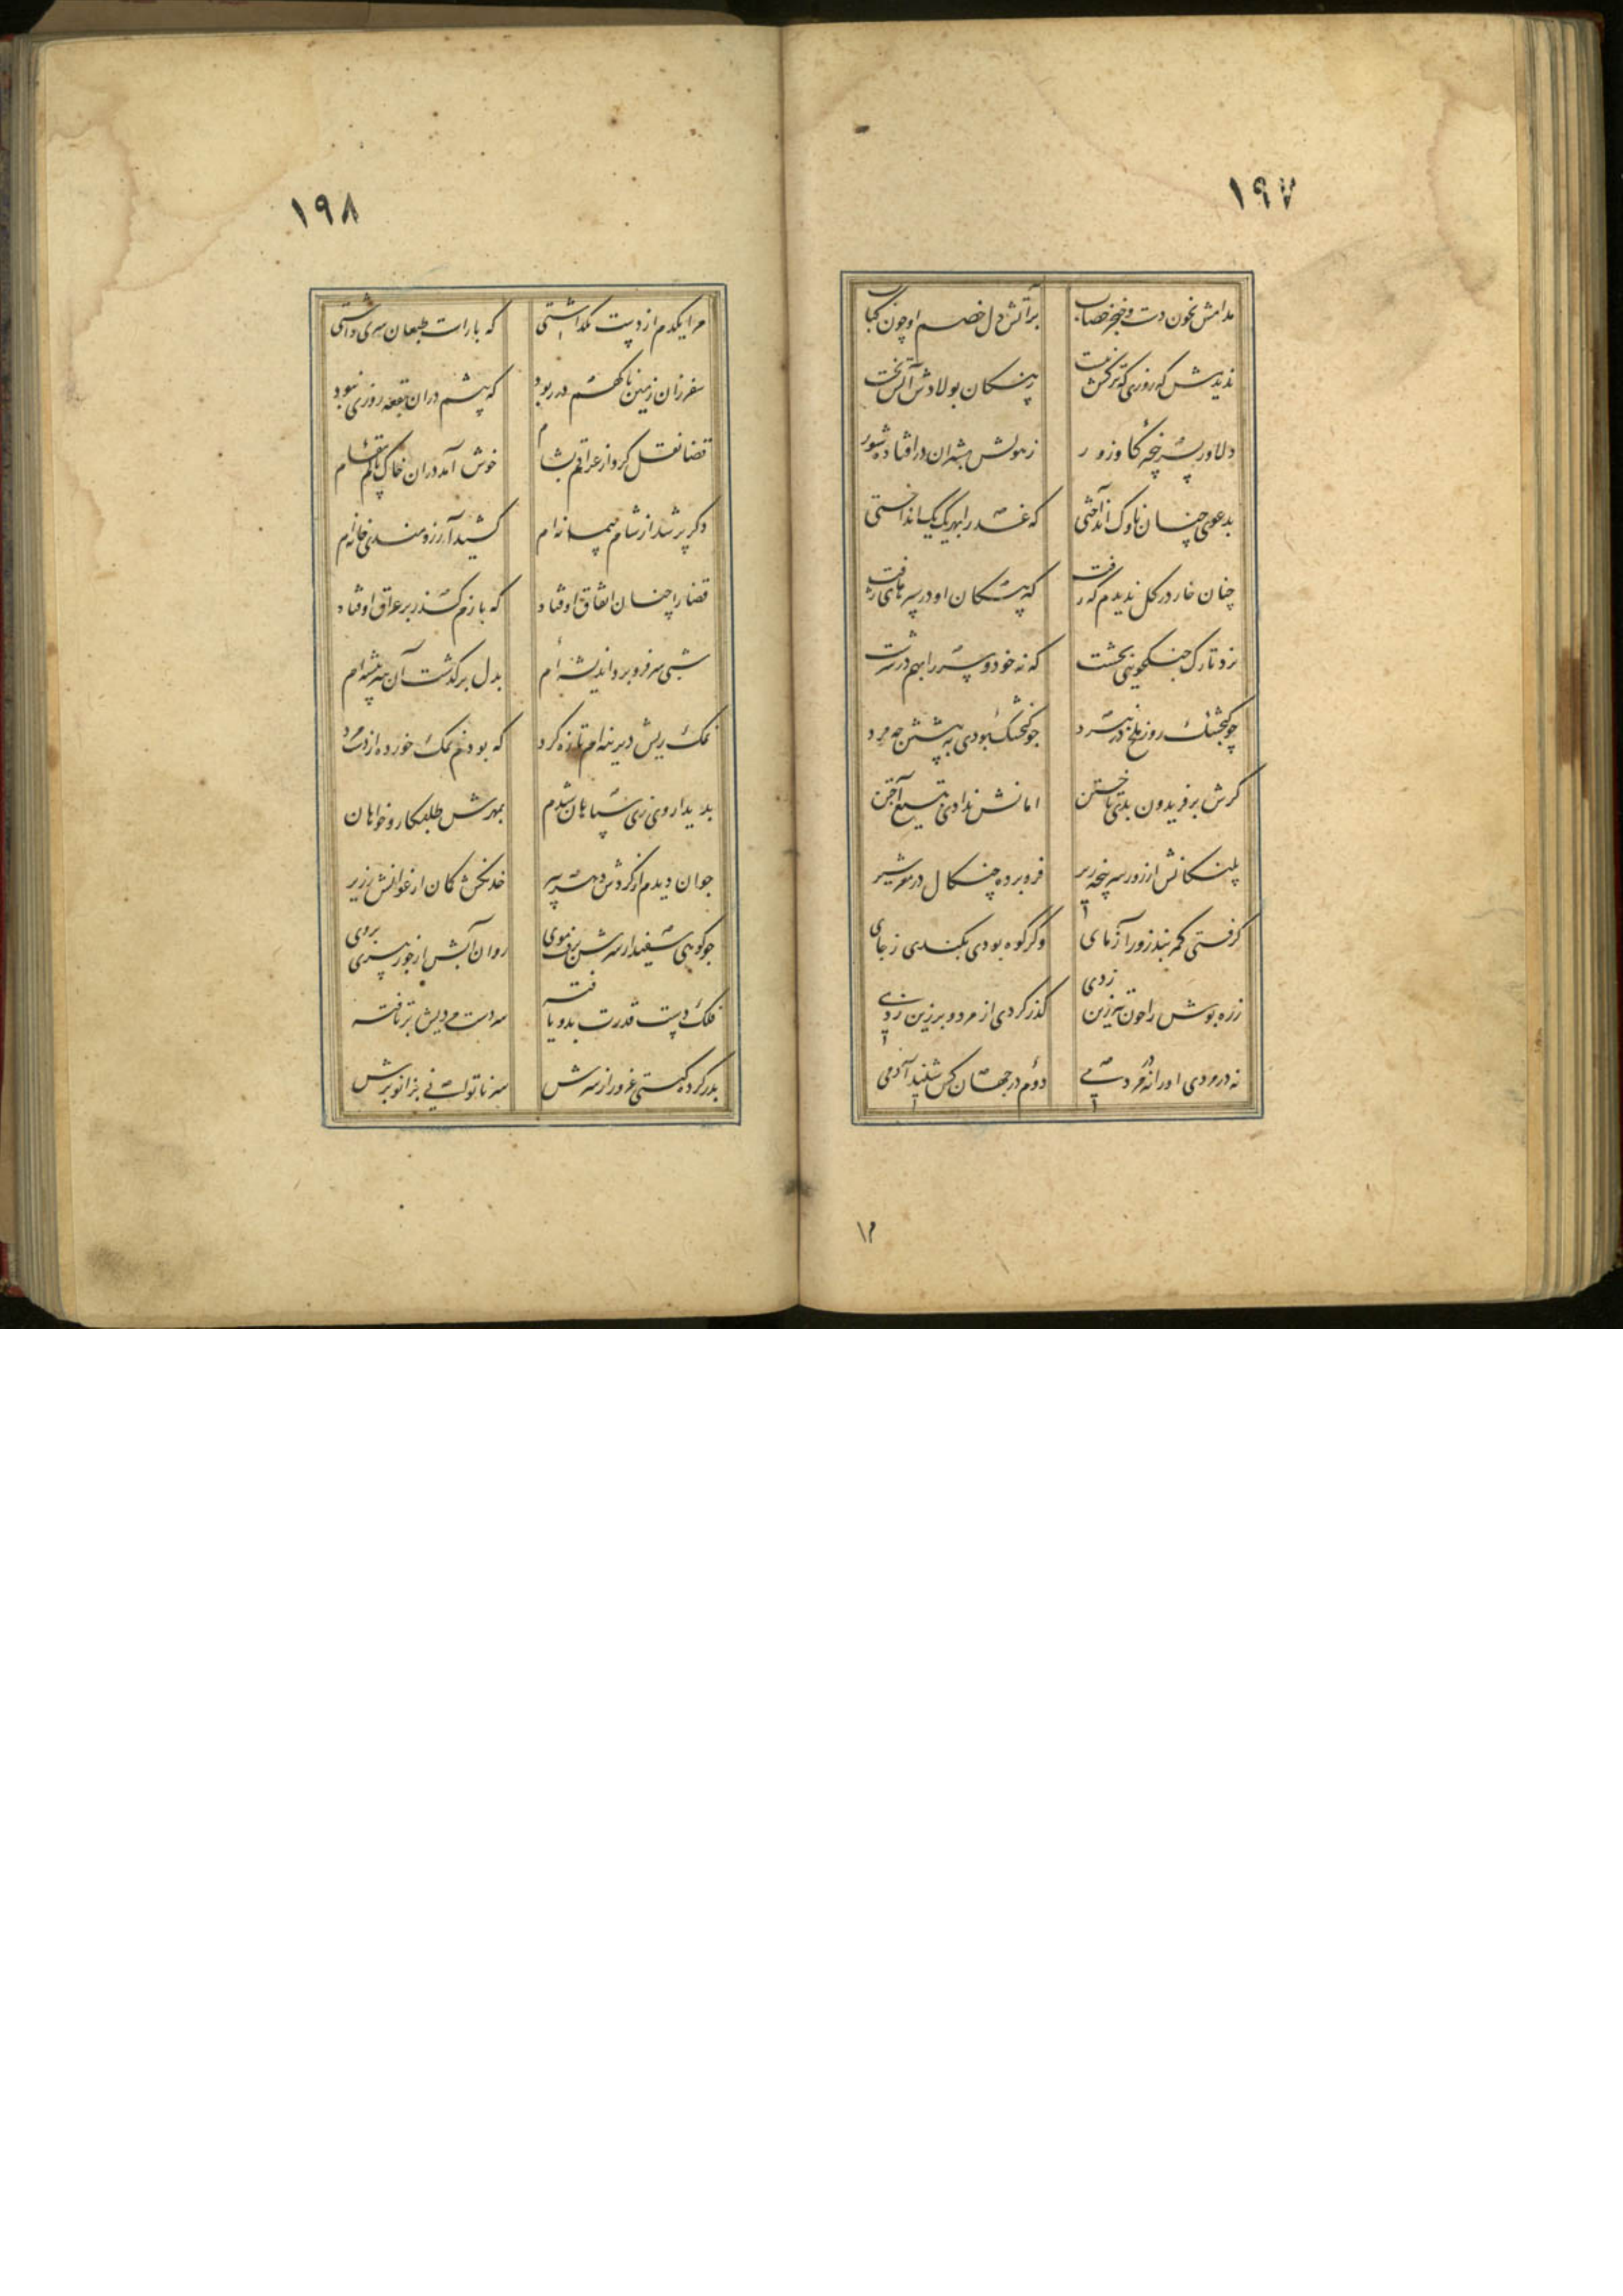 ۱۹۷
مدامش بخون دست و خنجر خضاب بر آتش دل خصم او چون کباب
ندیدمش که روزی که ترکش نبست ز پیکان پولادش آتش نجست
دلاور بسرپنجه گاو زور ز هولش بشیران در افتاده شور
بدعوی چنان ناوک انداختی که عذرا بهر یک یک انداختی
چنان خار در گل ندیدم که رفت که پیکان او در سپرهای زفت
نزد تارک جنگجویی بخشت که نه خود و سر را بهم در سرشت
چو گنجشک روز ملخ در نبرد چو گنجشک بودی به پیشش چه مرد
گرش بر فریدون بدی تاختن امانش ندادی بتیغ آختن
پلنگانش از زور سرپنجه زیر فرو برده چنگال در مغز شیر
گرفتی کمربند زورآزمای وگر کوه بودی بکندی ز جای
زره پوش را چون تبرزین زدی گذر کردی از مرد و بر زین زدی
نه در مردی او را نه در مردمی دوم در جهان کس شنید آدمی
۱۲
۱۹۸
مرا یکدم از دست نگذاشتی که با راست طبعان سری داشتی
سفر زان زمین ناگهم در ربود که بیشم در ان بقعه روزی نبود
قضا نقل کرد از عراقم بشام خوش آمد در ان خاک پاکم مقام
دگر پر شد از شام پیمانه ام کشید آرزومندی خانه ام
قضا را چنان اتفاق اوفتاد که بازم گذر بر عراق اوفتاد
شبی سر فرو برد اندیشه ام بدل بر گذشت آن هنرپیشه ام
نمک ریش دیرینه ام تازه کرد که بودم نمک خورده از دست مرد
بدیدار وی زی سپاهان شدم بمهرش طلبکار و خواهان
جوان دیدم از گردش دهر پیر خدنگش کمان ارغوانش زریر
چو کوهی سفیدار سرش برف موی روان آبش از جور پیری بروی
فلک دست قدرت بدو یافته سر دست مردیش برتافته
بدر کرده گیتی غرور از سرش سر ناتوانی بزانو برش